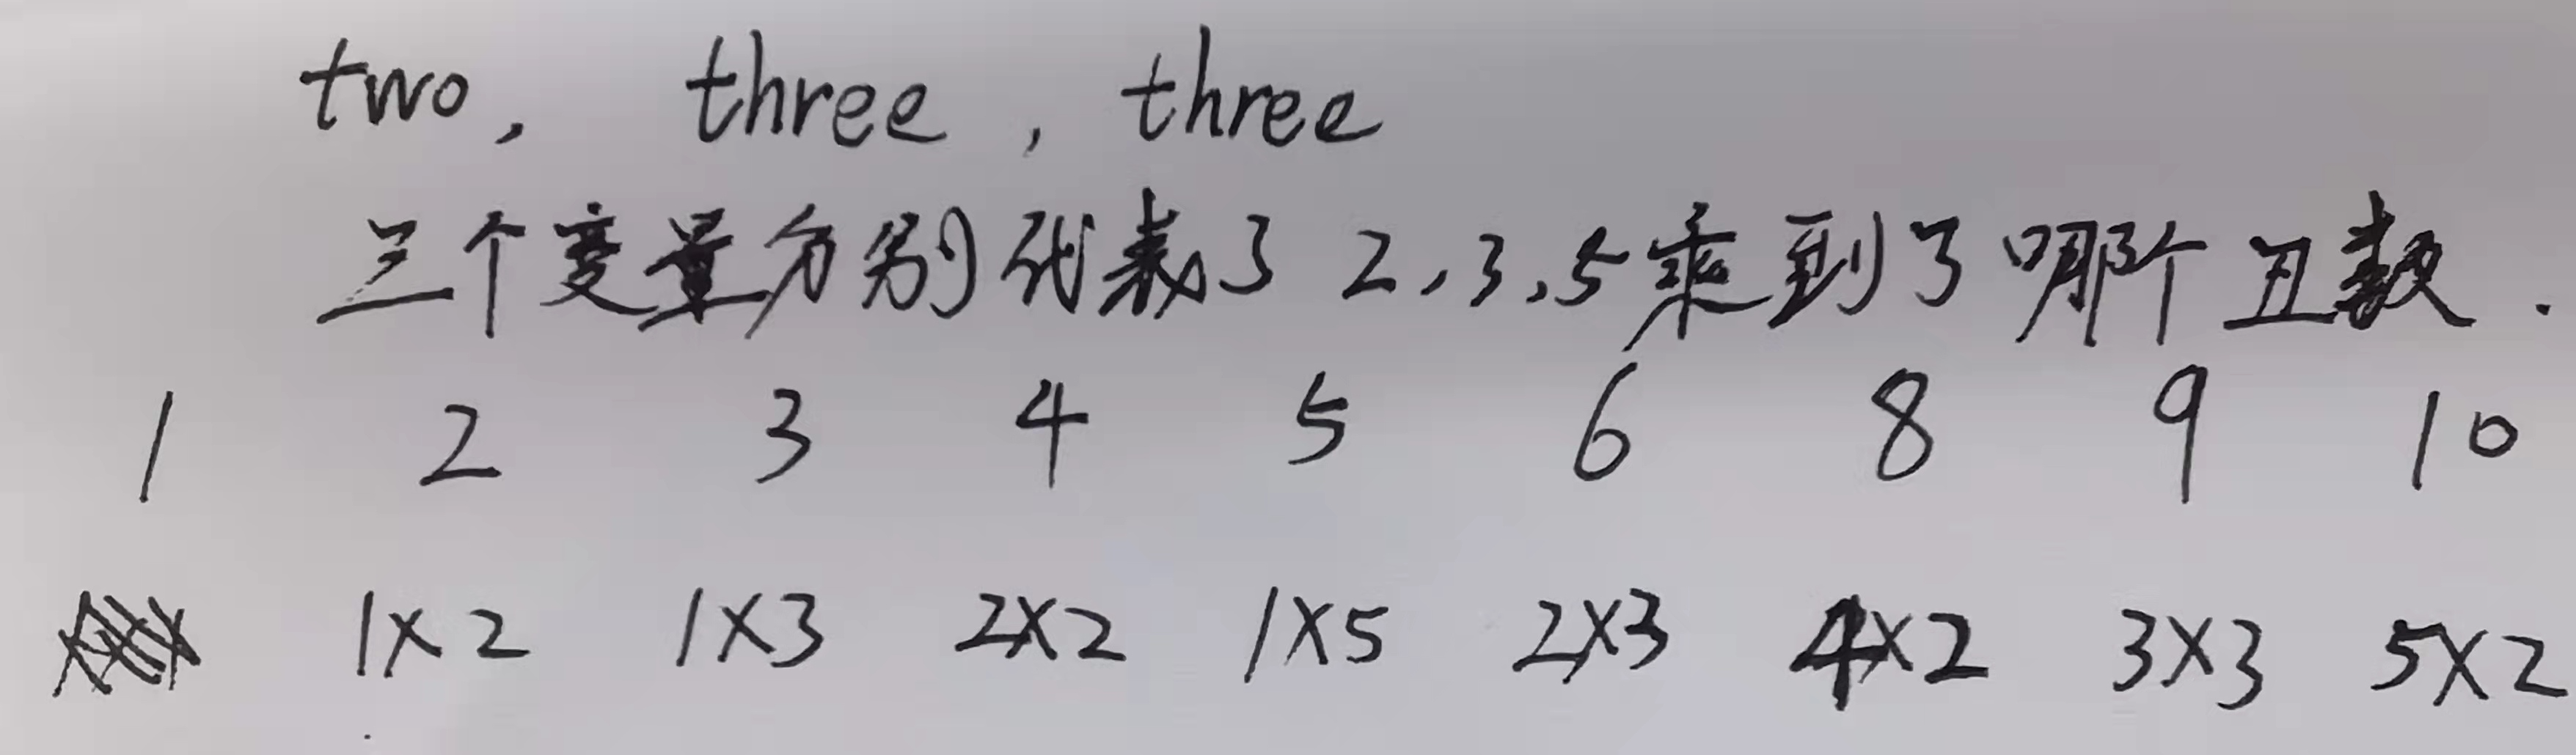 two, three, three
三个变量分别代表了 2,3,5乘到了哪个丑数.
1 2 3 4 5 6 8 9 10
1×2 1×3 2×2 1×5 2×3 4×2 3×3 5×2